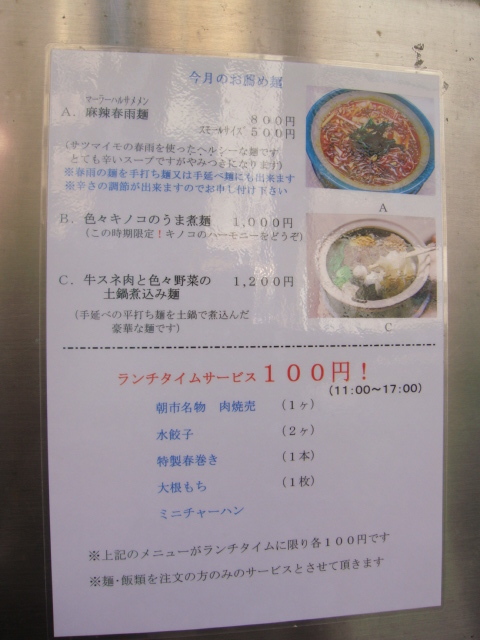 今月のお薦め麺
マーラーハルサメメン
A．麻辣春雨麺 800円
スモールサイズ 500円
（サツマイモの春雨を使ったヘルシーな麺です
とても辛いスープですがやみつきになります）
※春雨の麺を手打ち麺又は手延べ麺にも出来ます
※辛さの調節が出来ますのでお申し付け下さい
A
B．色々キノコのうま煮麺 1,000円
（この時期限定！キノコのハーモニーをどうぞ）
C．牛スネ肉と色々野菜の 1,200円
土鍋煮込み麺
（手延べの平打ち麺を土鍋で煮込んだ
豪華な麺です）
C
ランチタイムサービス１００円！
(11:00～17:00)
朝市名物 肉焼売 （1ヶ）
水餃子 （2ヶ）
特製春巻き （1本）
大根もち （1枚）
ミニチャーハン
※上記のメニューがランチタイムに限り各１００円です
※麺・飯類を注文の方のみのサービスとさせて頂きます